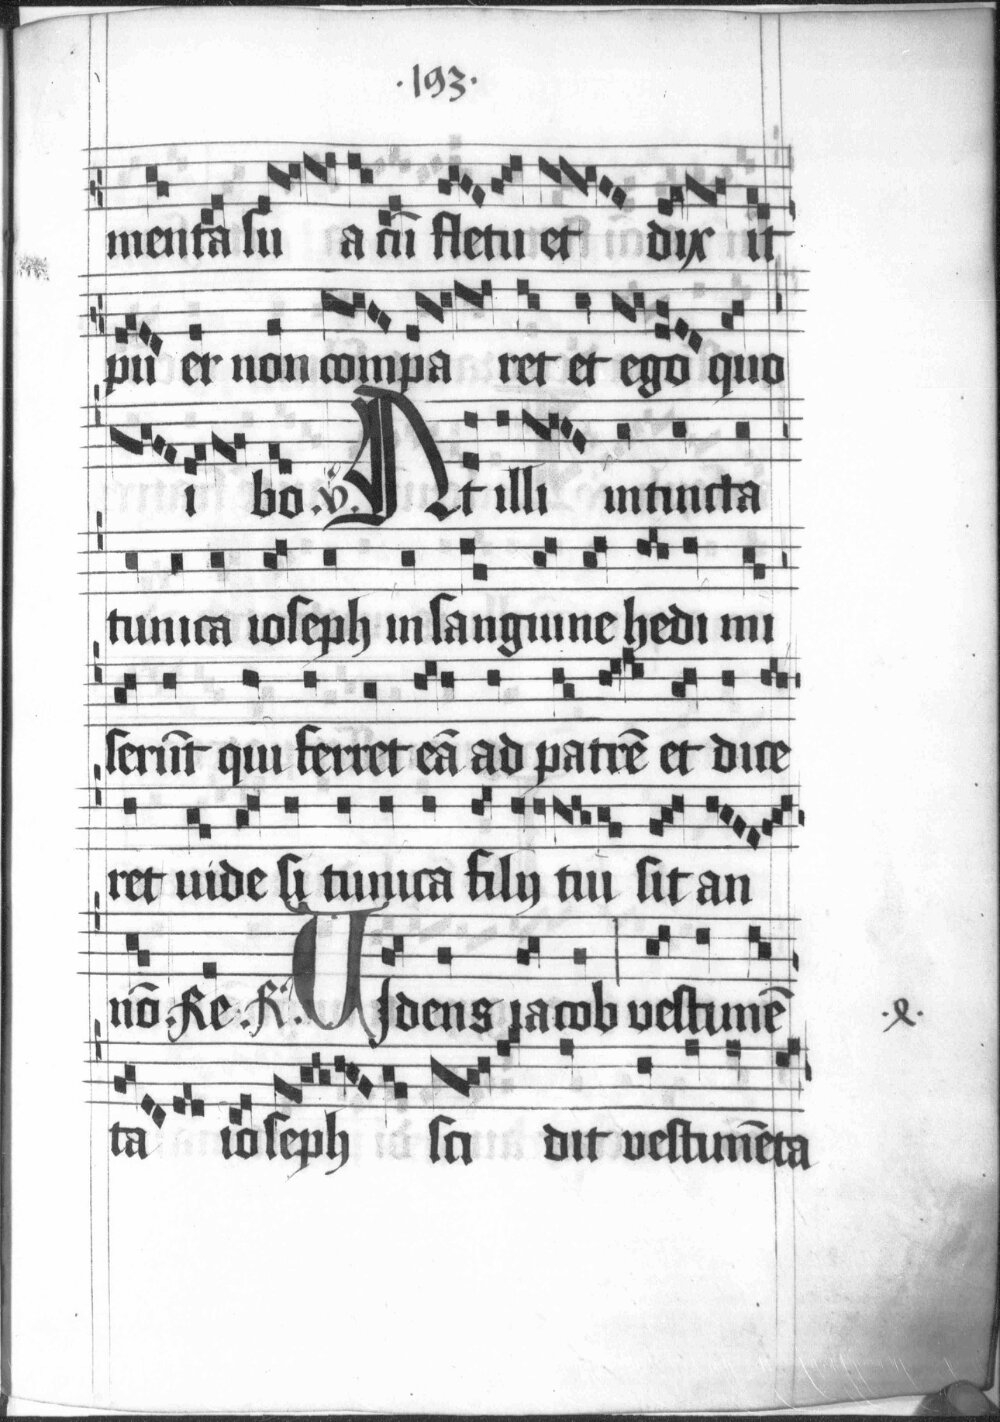 ·193·
menta su a cū fletu et dix it
pu er non compa ret et ego quo
i bo .v. At illi intincta
tunica ioseph in sanguine hedi mi
serūt qui ferret eā ad patrē et dice
ret uide si tunica filij tui sit an
nō .Re .R. Uidens iacob vestimē
ta ioseph sci dit vestimēta